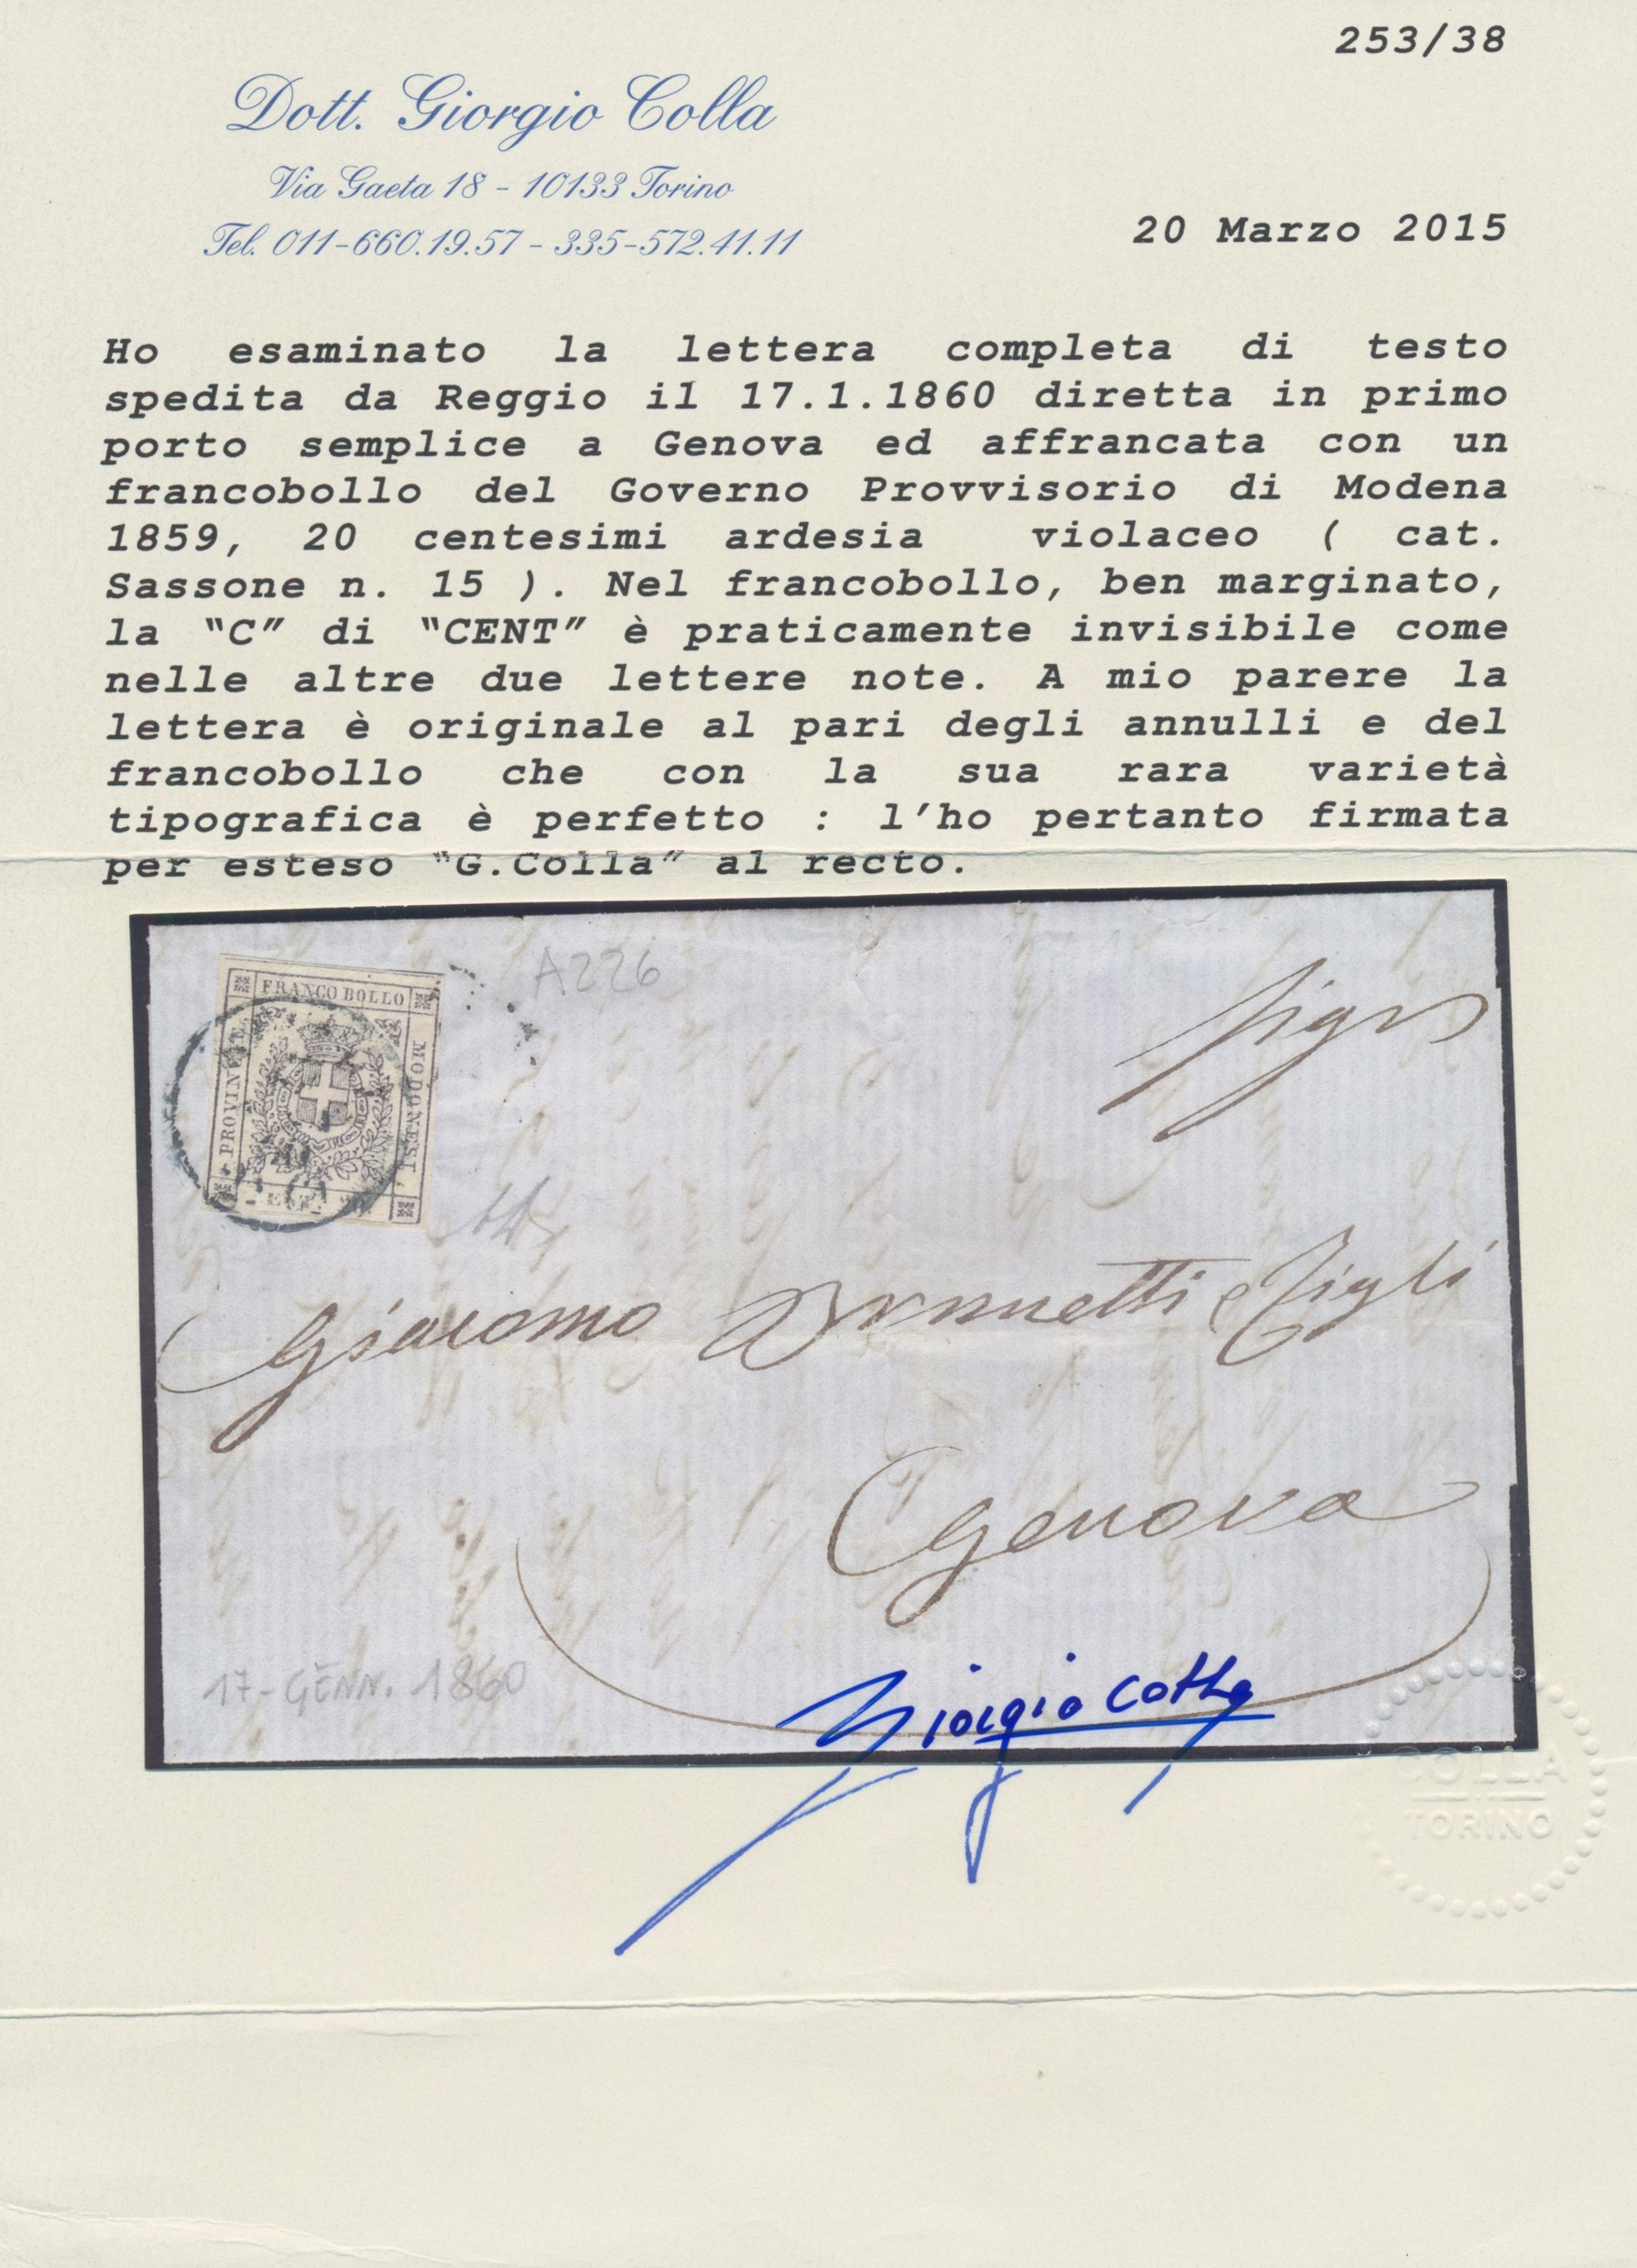 253/38
Dott. Giorgio Colla
Via Gaeta 18 - 10133 Torino
Tel. 011-660.19.57 - 335-572.41.11
20 Marzo 2015
Ho esaminato la lettera completa di testo
spedita da Reggio il 17.1.1860 diretta in primo
porto semplice a Genova ed affrancata con un
francobollo del Governo Provvisorio di Modena
1859, 20 centesimi ardesia violaceo ( cat.
Sassone n. 15 ). Nel francobollo, ben marginato,
la “C” di “CENT” è praticamente invisibile come
nelle altre due lettere note. A mio parere la
lettera è originale al pari degli annulli e del
francobollo che con la sua rara varietà
tipografica è perfetto : l’ho pertanto firmata
per esteso “G.Colla” al recto.
A226
FRANCO BOLLO
PROVINCIE
MODONESI
Giacomo e Figli
Genova
17-GENN. 1860
Giorgio Colla
COLLA
TORINO